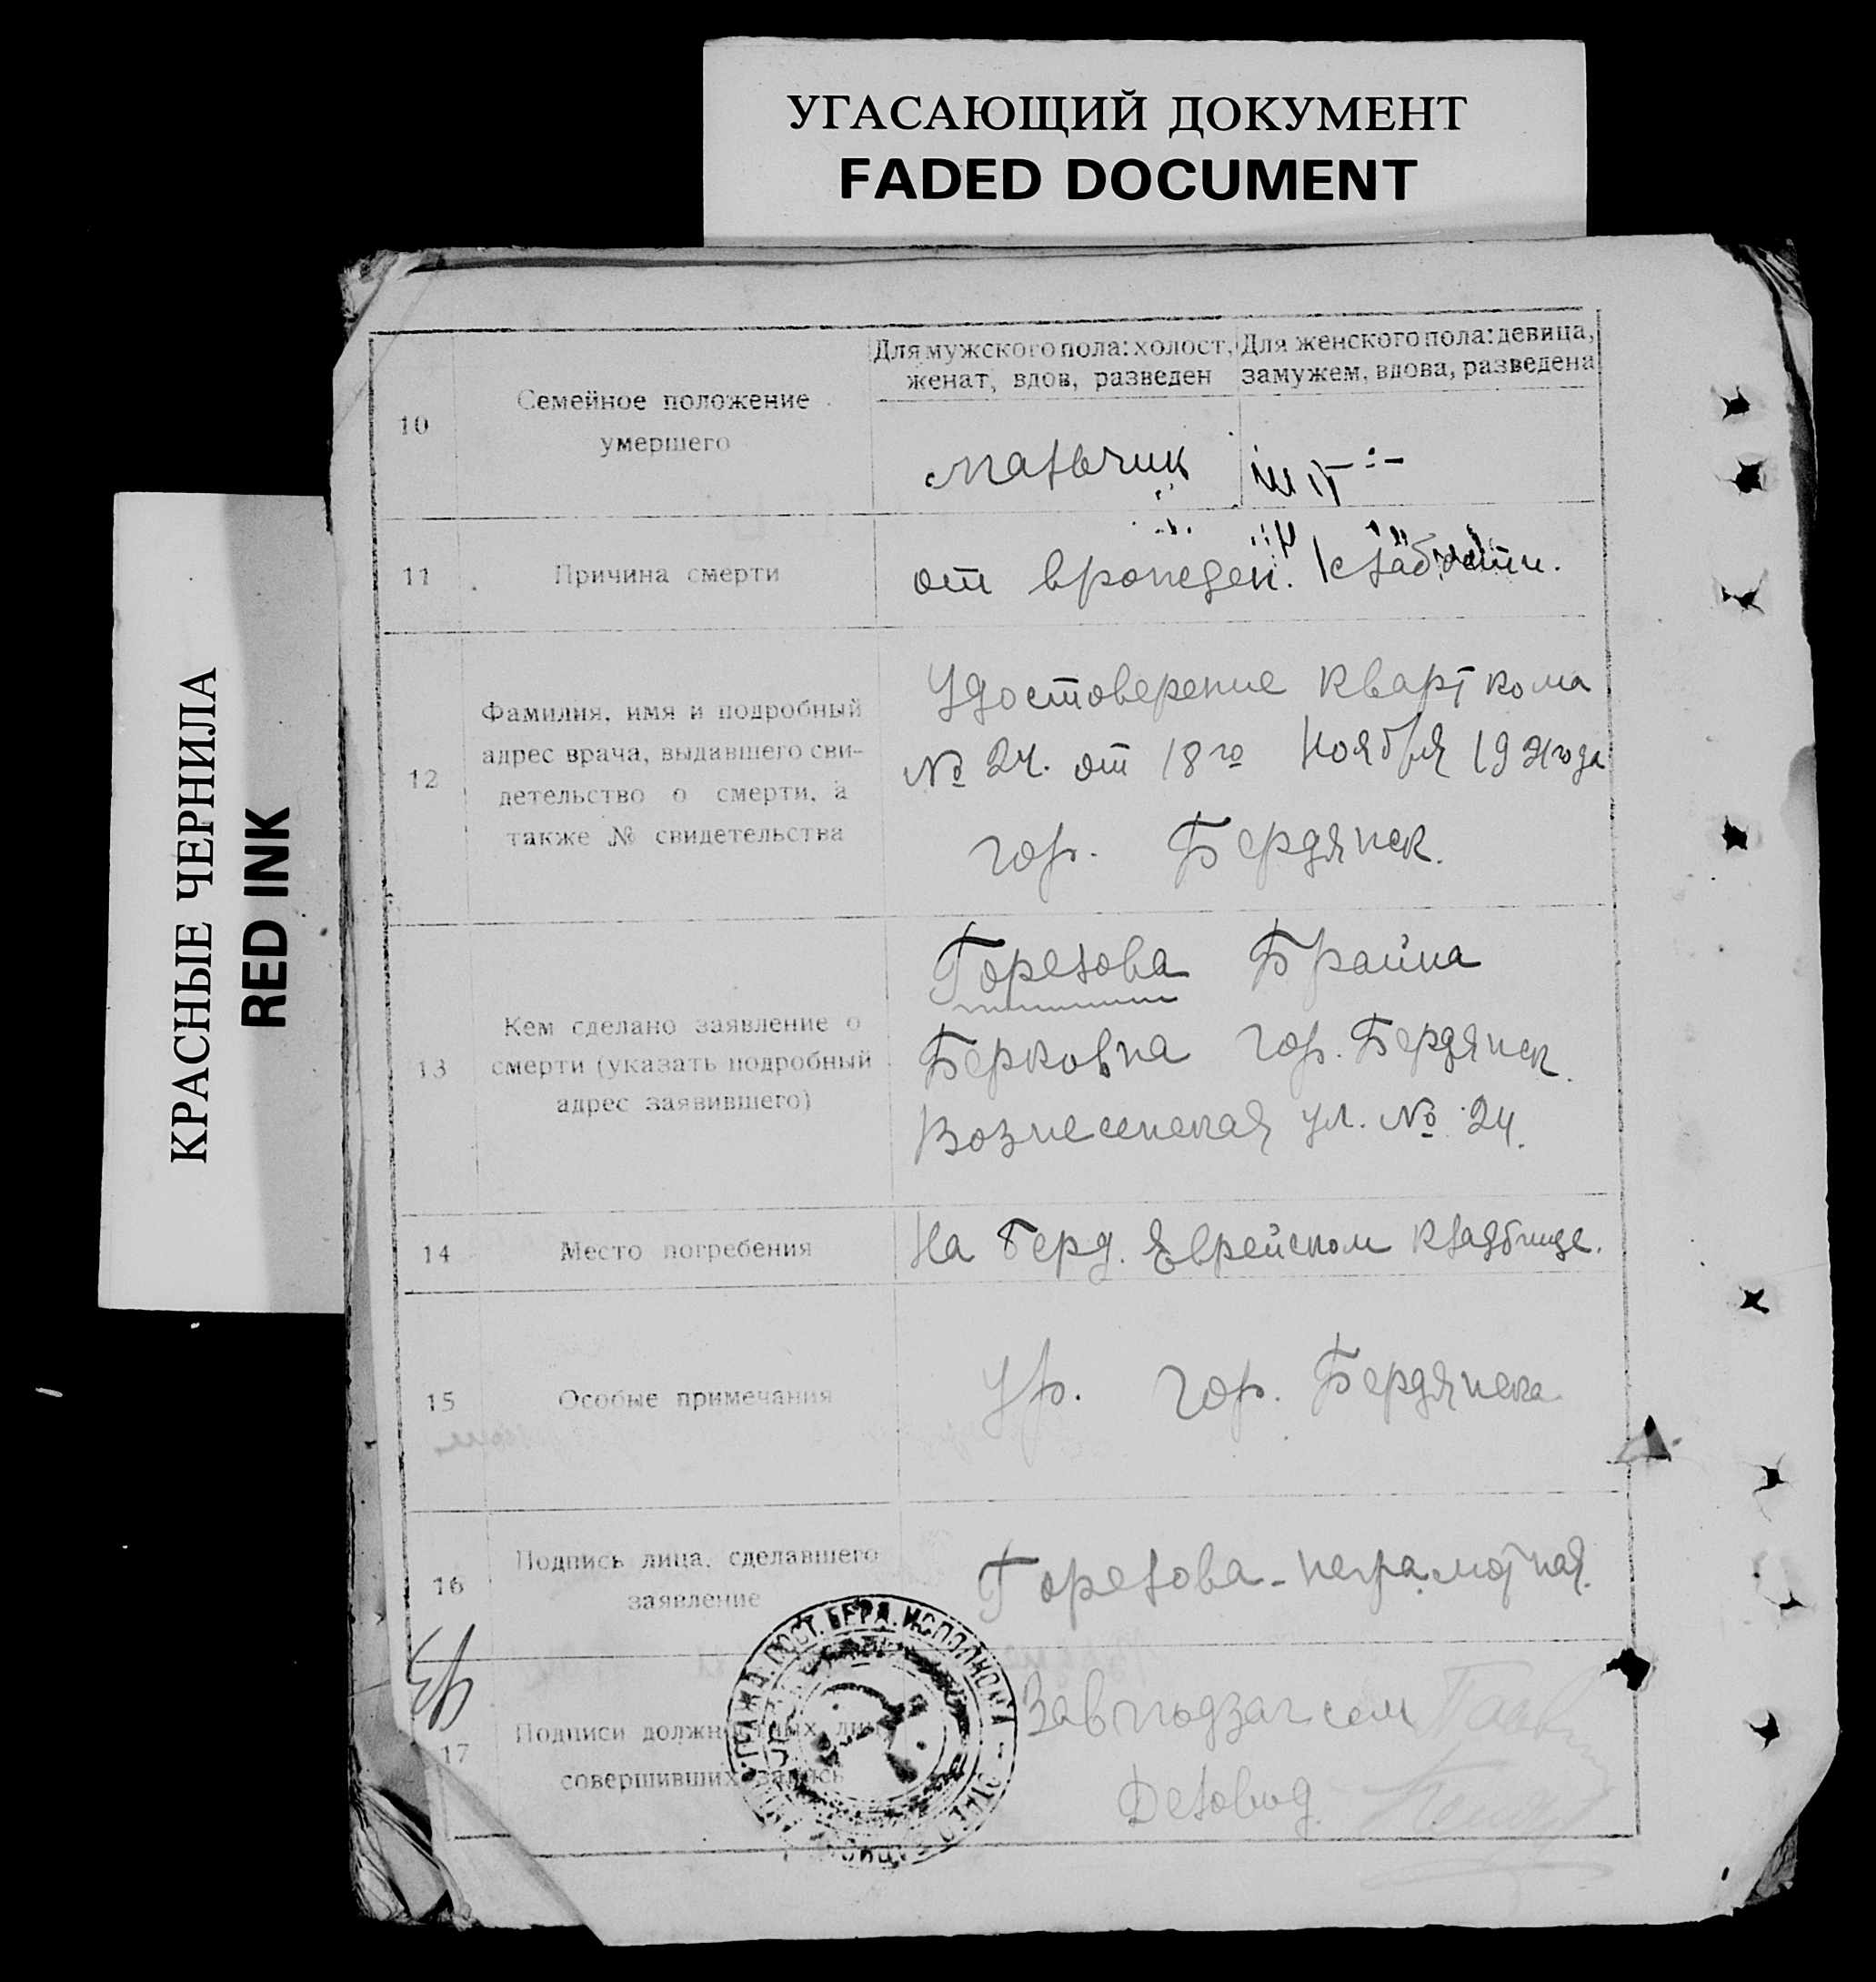 УГАСАЮЩИЙ ДОКУМЕНТ
FADED DOCUMENT
КРАСНЫЕ ЧЕРНИЛА
RED INK
10
Семейное положение
умершего
Для мужского пола: холост,
женат, вдов, разведен
Для женского пола: девица,
замужем, вдова, разведена
мальчик
11
Причина смерти
от врожден. слабости.
12
Фамилия, имя и подробный
адрес врача, выдавшего сви-
детельство о смерти, а
также № свидетельства
Удостоверение Кварткома
№ 24. от 18го Ноября 1921 года
гор. Бердянск.
13
Кем сделано заявление о
смерти (указать подробный
адрес заявившего)
Горелова Брайна
Берковна гор. Бердянск.
Вознесенская ул. № 24.
14
Место погребения
На Берд. Еврейском кладбище.
15
Особые примечания
Ур. гор. Бердянска
16
Подпись лица, сделавшего
заявление
Горелова - неграмотная.
17
Подписи должностных лиц
совершивших запись
Завподзагсем
Деловод.
ПОСТ. БЕРД. ИСПОЛКОМА